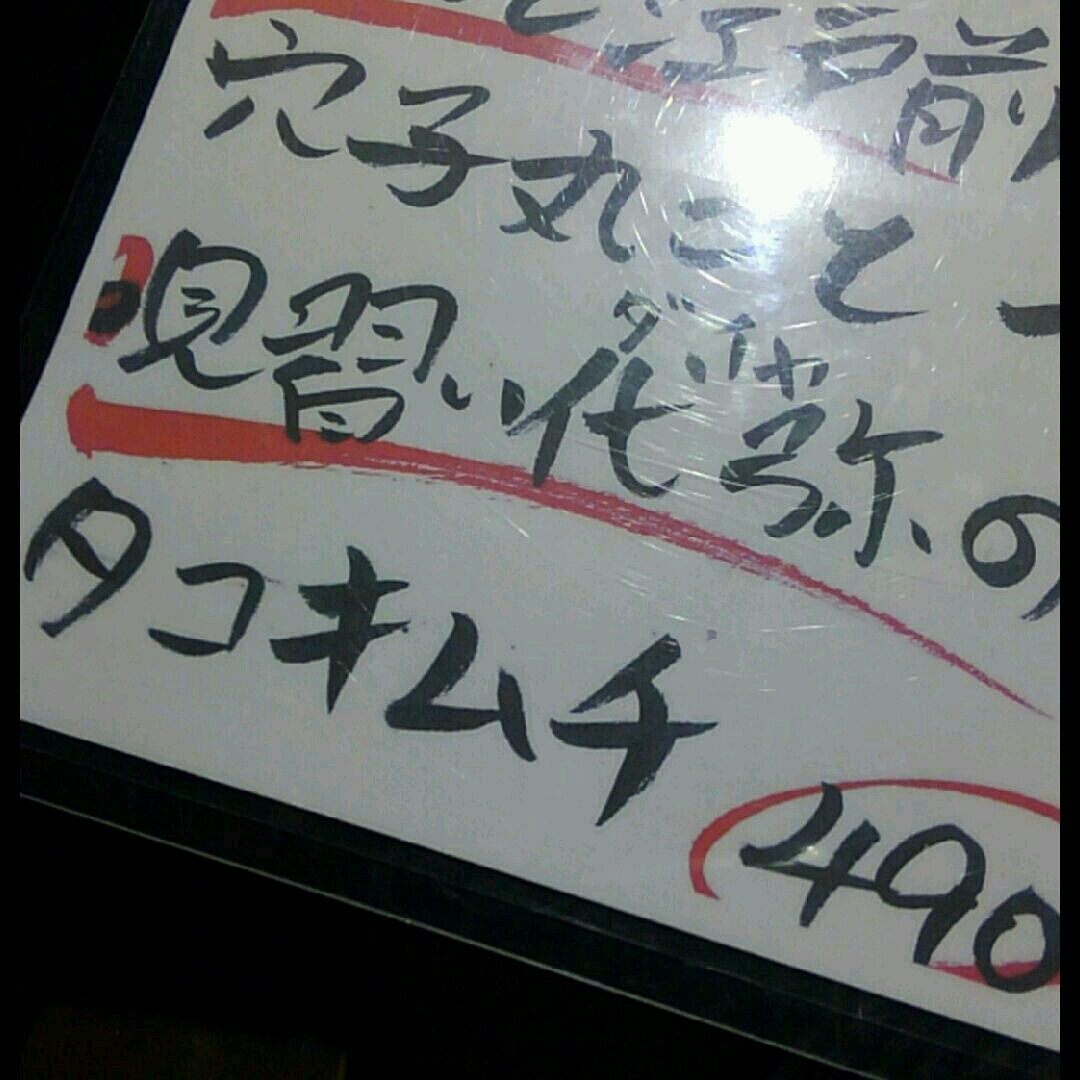 と江戸前
穴子丸ごと一
見習い代弥の
ダイヤ
タコキムチ
490